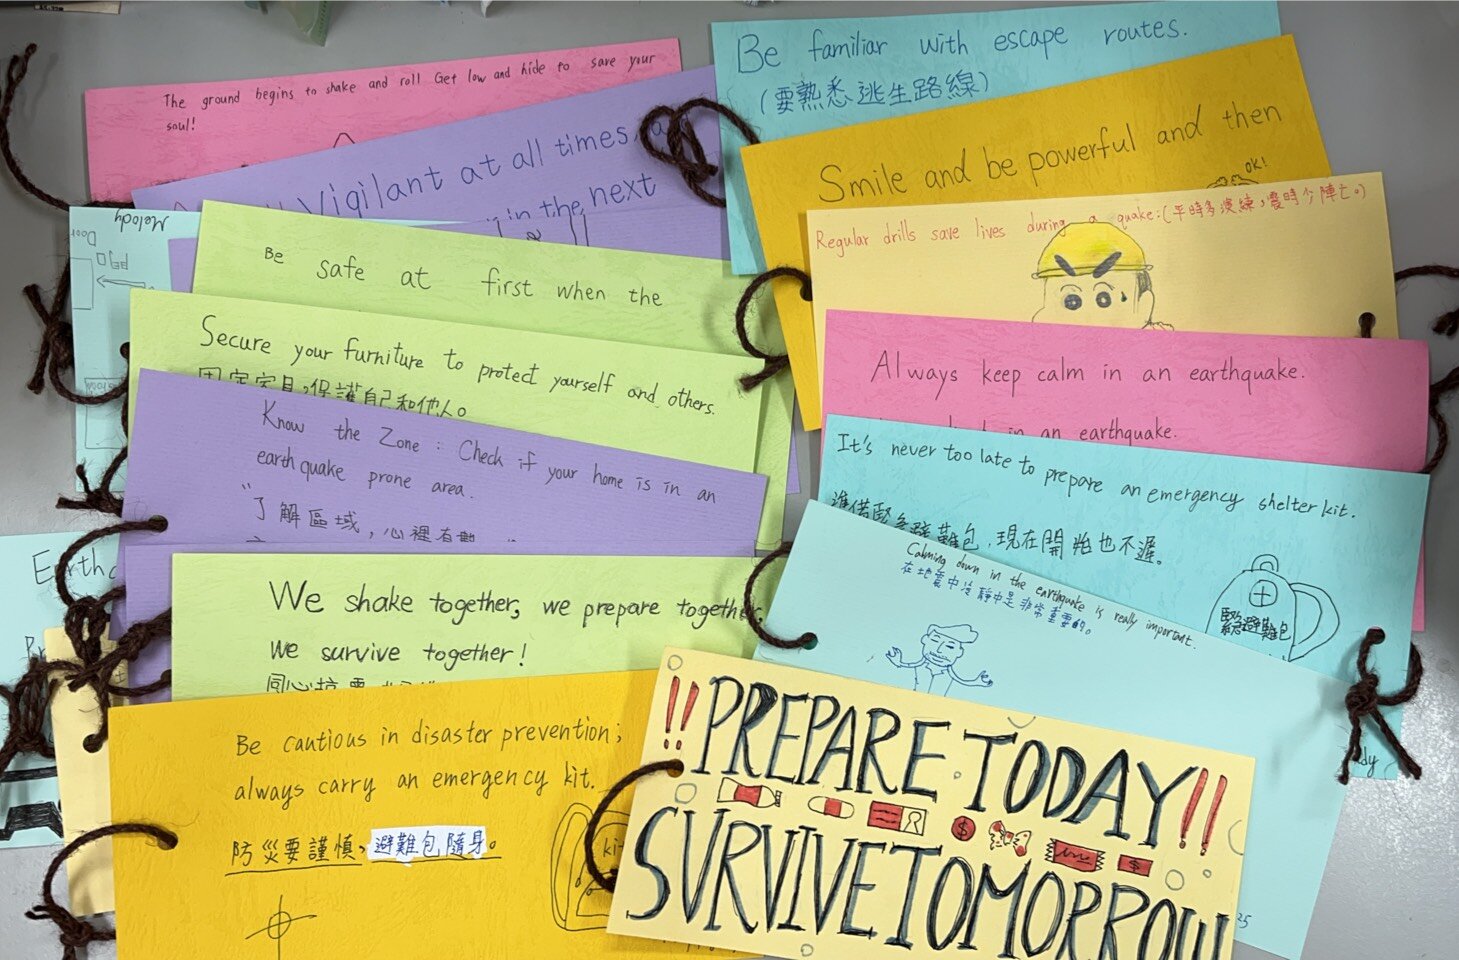 The ground begins to shake and roll Get low and hide to save your
soul!
Vigilant at all times
in the next
Melody
Door
Be safe at first when the
Secure your furniture to protect yourself and others.
固定家具,保護自己和他人。
Know the Zone : Check if your home is in an
earthquake prone area.
"了解區域,心裡有
We shake together, we prepare together,
We survive together!
同心抗震
Be cautious in disaster prevention;
always carry an emergency kit.
防災要謹慎,避難包隨身。
Be familiar with escape routes.
(要熟悉逃生路線)
Smile and be powerful and then
OK!
Regular drills save lives during a quake:(平時多演練,震時少陣亡。)
Always keep calm in an earthquake.
in an earthquake.
It's never too late to prepare an emergency shelter kit.
準備緊急避難包,現在開始也不遲。
緊急避難包
Calming down in the earthquake is really important.
在地震中冷靜中是非常重要的。
!!PREPARE TODAY!!
SURVIVE TOMORROW
25